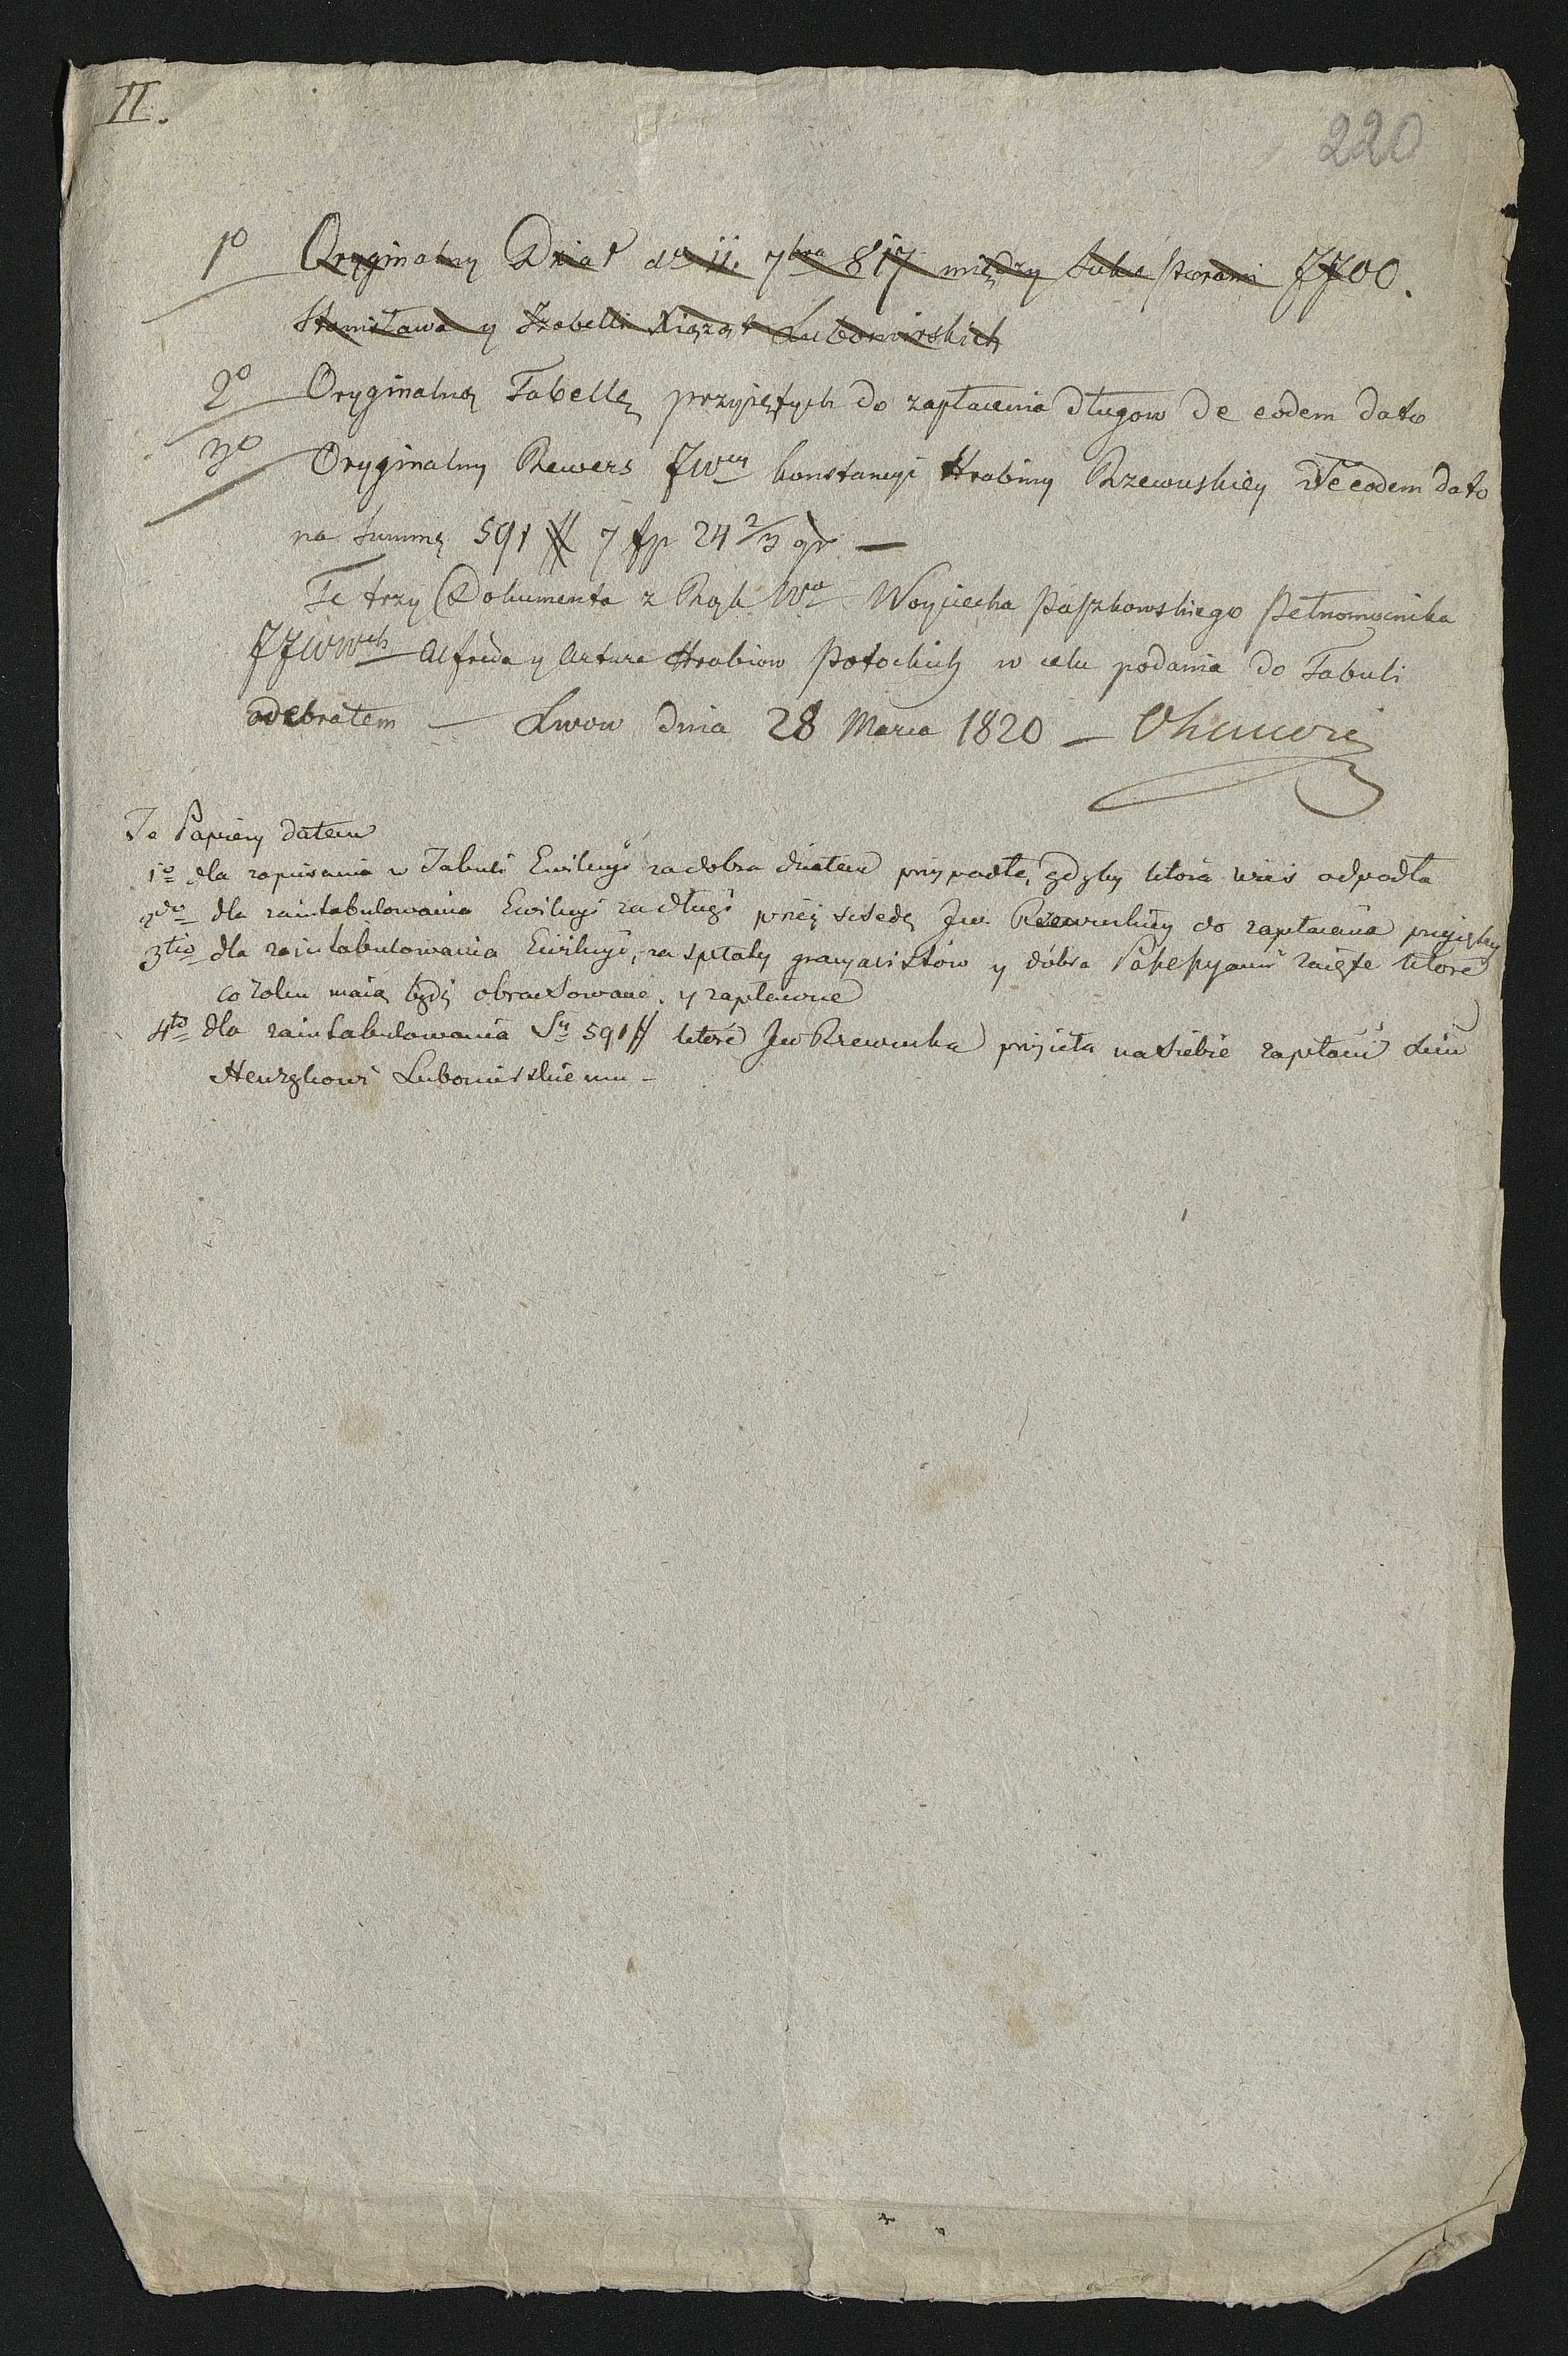 II.
220
1º Oryginalny Dział dto 11. 7bra 817 między Sukcessorami JJOO.
Stanisława y Izabelli Xiążąt Lubomirskich
2º Oryginalną Tabellę przyjętych do zapłacenia długow de eodem dato
3º Oryginalny Rewers JWey Konstancyi Hrabiny Rzewuskiey de eodem dato
na Summę 591 # 7 fp 24 2/3 gr —
Te trzy Dokumenta z Rąk Wo Woyciecha Paszkowskiego Pełnomocnika
JJWWch Alfreda y Artura Hrabiow Potockich w celu podania do Tabuli
odebrałem — Lwow dnia 28 Marca 1820 —
Te Papiery dałem
1º dla zapisania w Tabuli Ewikcyi za dobra działem przypadłe, gdyby która wieś odpadła
2do dla zaintabulowania Ewikcyi za długi przez schedę Jw. Rzewuskiey do zapłacenia przyięte
3tio dla zaintabulowania Ewikcyi, za spłaty gracyalistów y dóbra zaięte które
co roku maią bydź obrachowane. y zapłacone
4to dla zaintabulowania Sy 591 # które Jw Rzewuska przyieła na siebie zapłacić Xciu
Henrykowi Lubomirskiemu –